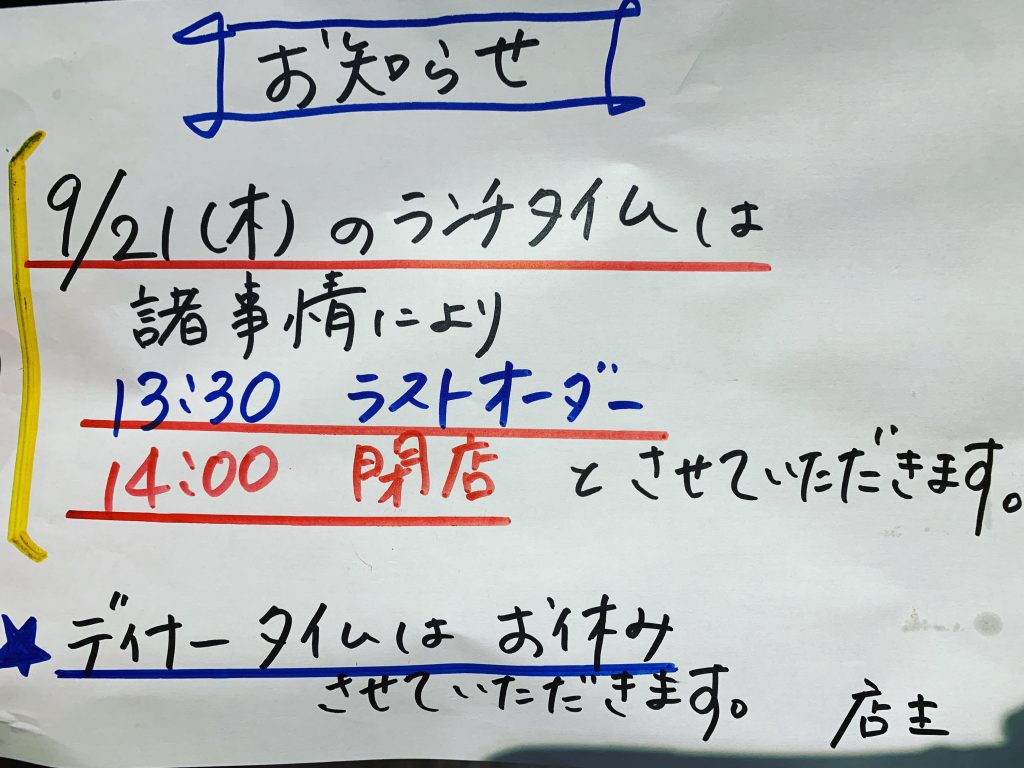 お知らせ
9/21(木)のランチタイムは
諸事情により
13:30 ラストオーダー
14:00 閉店 とさせていただきます。
★ディナータイムはお休み
させていただきます。
店主